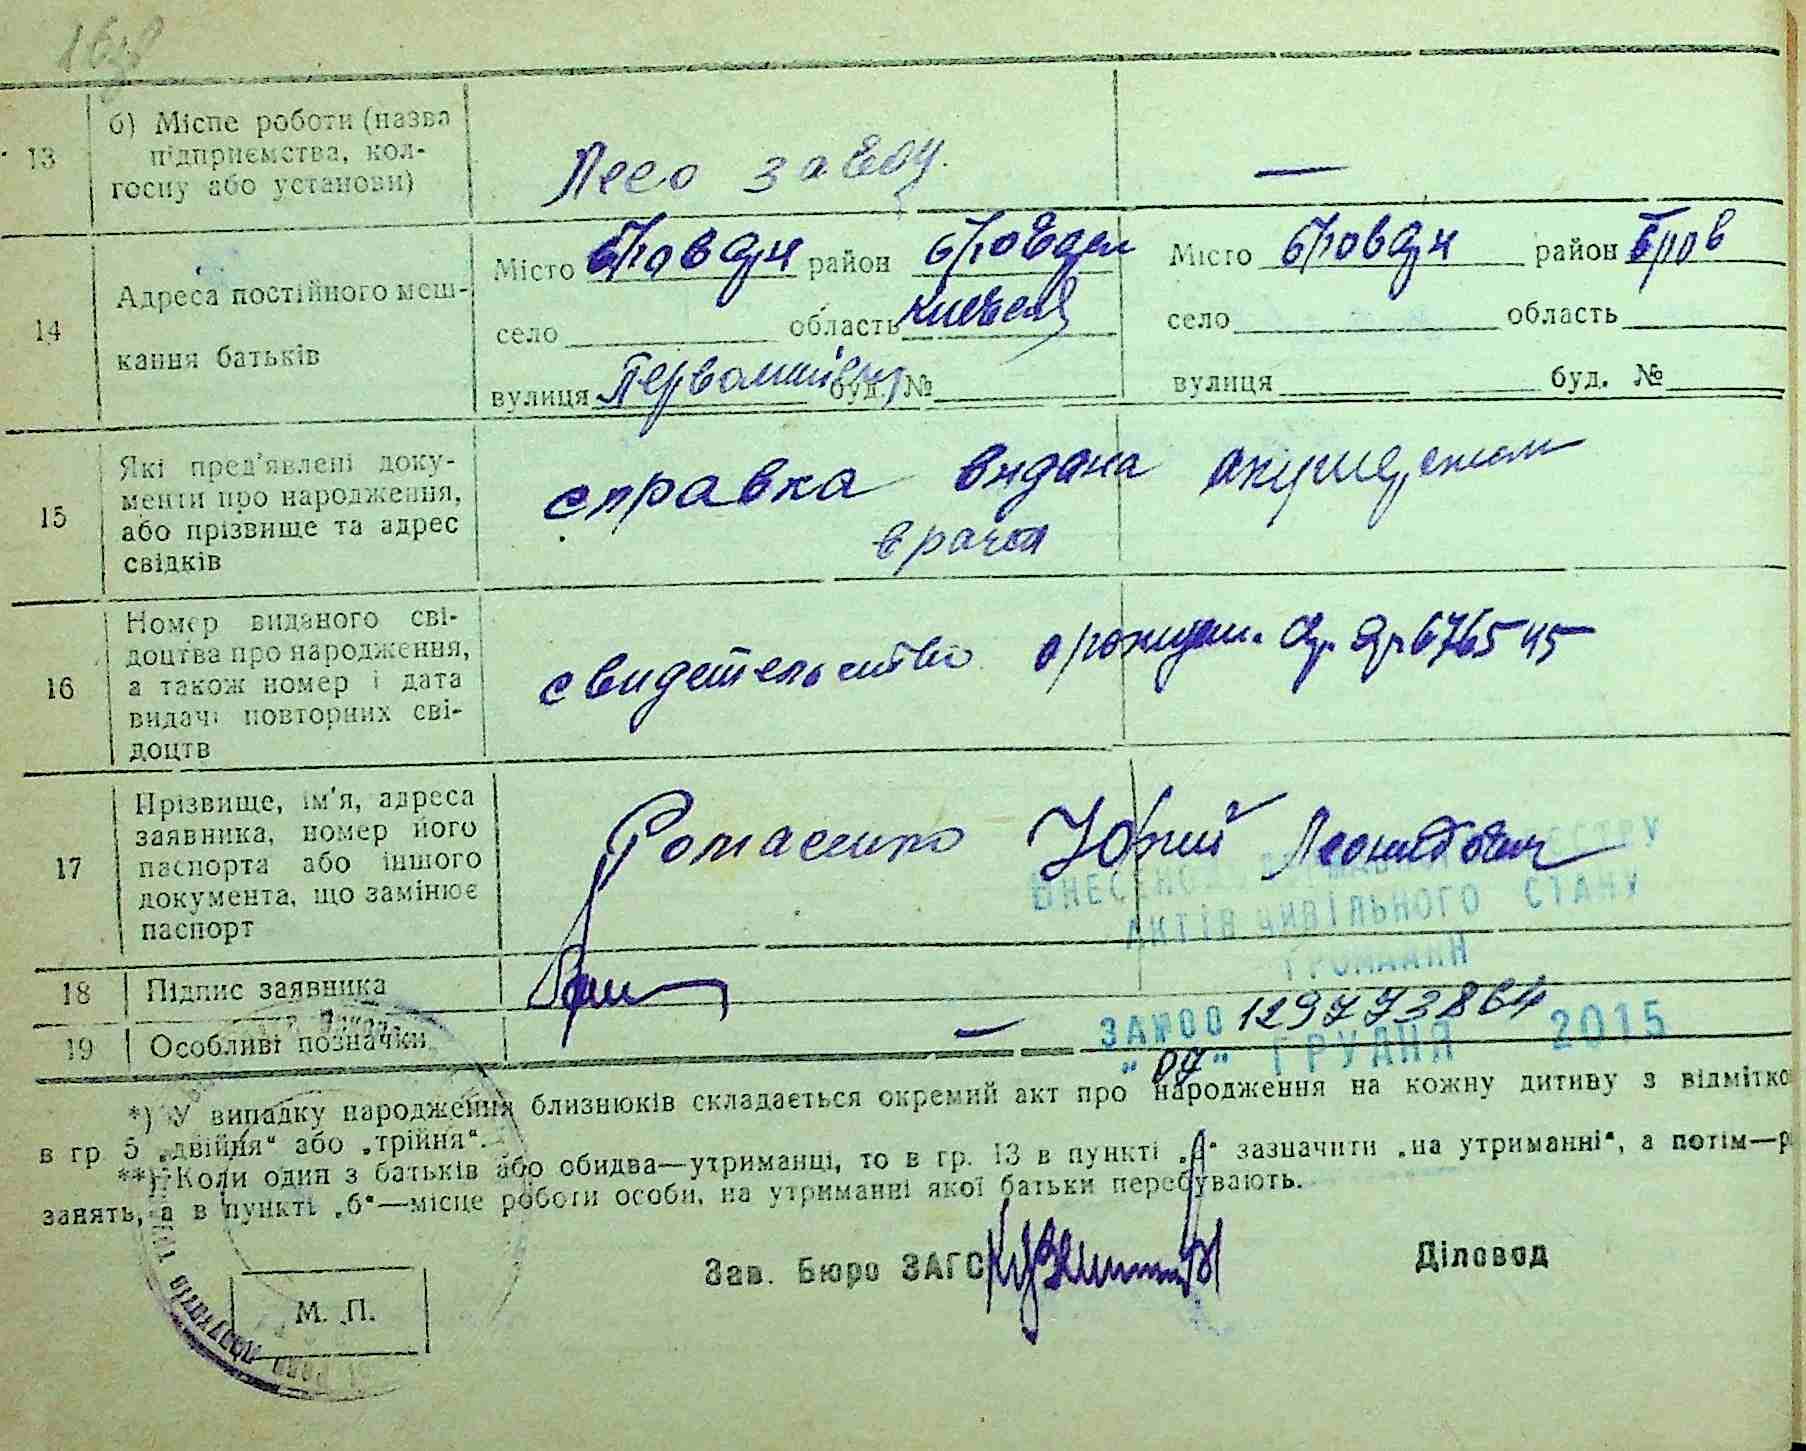 13
б) Місце роботи (назва
підприємства, кол-
госпу або установи)
Лесо завод.
—
14
Адреса постійного меш-
кання батьків
Місто Бровари район
село область
вулиця буд. №
Місто Бровари район Бров
село область
вулиця буд. №
15
Які пред'явлені доку-
менти про народження,
або прізвище та адрес
свідків
справка видана
врача
16
Номер виданого сві-
доцтва про народження,
а також номер і дата
видачі повторних сві-
доцтв
свидетельство о рожден.
17
Прізвище, ім'я, адреса
заявника, номер його
паспорта або іншого
документа, що замінює
паспорт
Юрий Леонидович
ВНЕСЕНО ДО ДЕРЖАВНОГО РЕЄСТРУ
АКТІВ ЦИВІЛЬНОГО СТАНУ
ГРОМАДЯН
18
Підпис заявника
19
Особливі позначки
—
ЗА №00 129773864
"07" ГРУДНЯ 2015
*) У випадку народження близнюків складається окремий акт про народження на кожну дитину з відмітко
в гр 5 „двійня“ або „трійня“.
**) Коли один з батьків або обидва—утриманці, то в гр. 13 в пункті „а“ зазначити „на утриманні“, а потім—р
занять, а в пункті „б“—місце роботи особи, на утриманні якої батьки перебувають.
Зав. Бюро ЗАГС
Діловод
М. П.